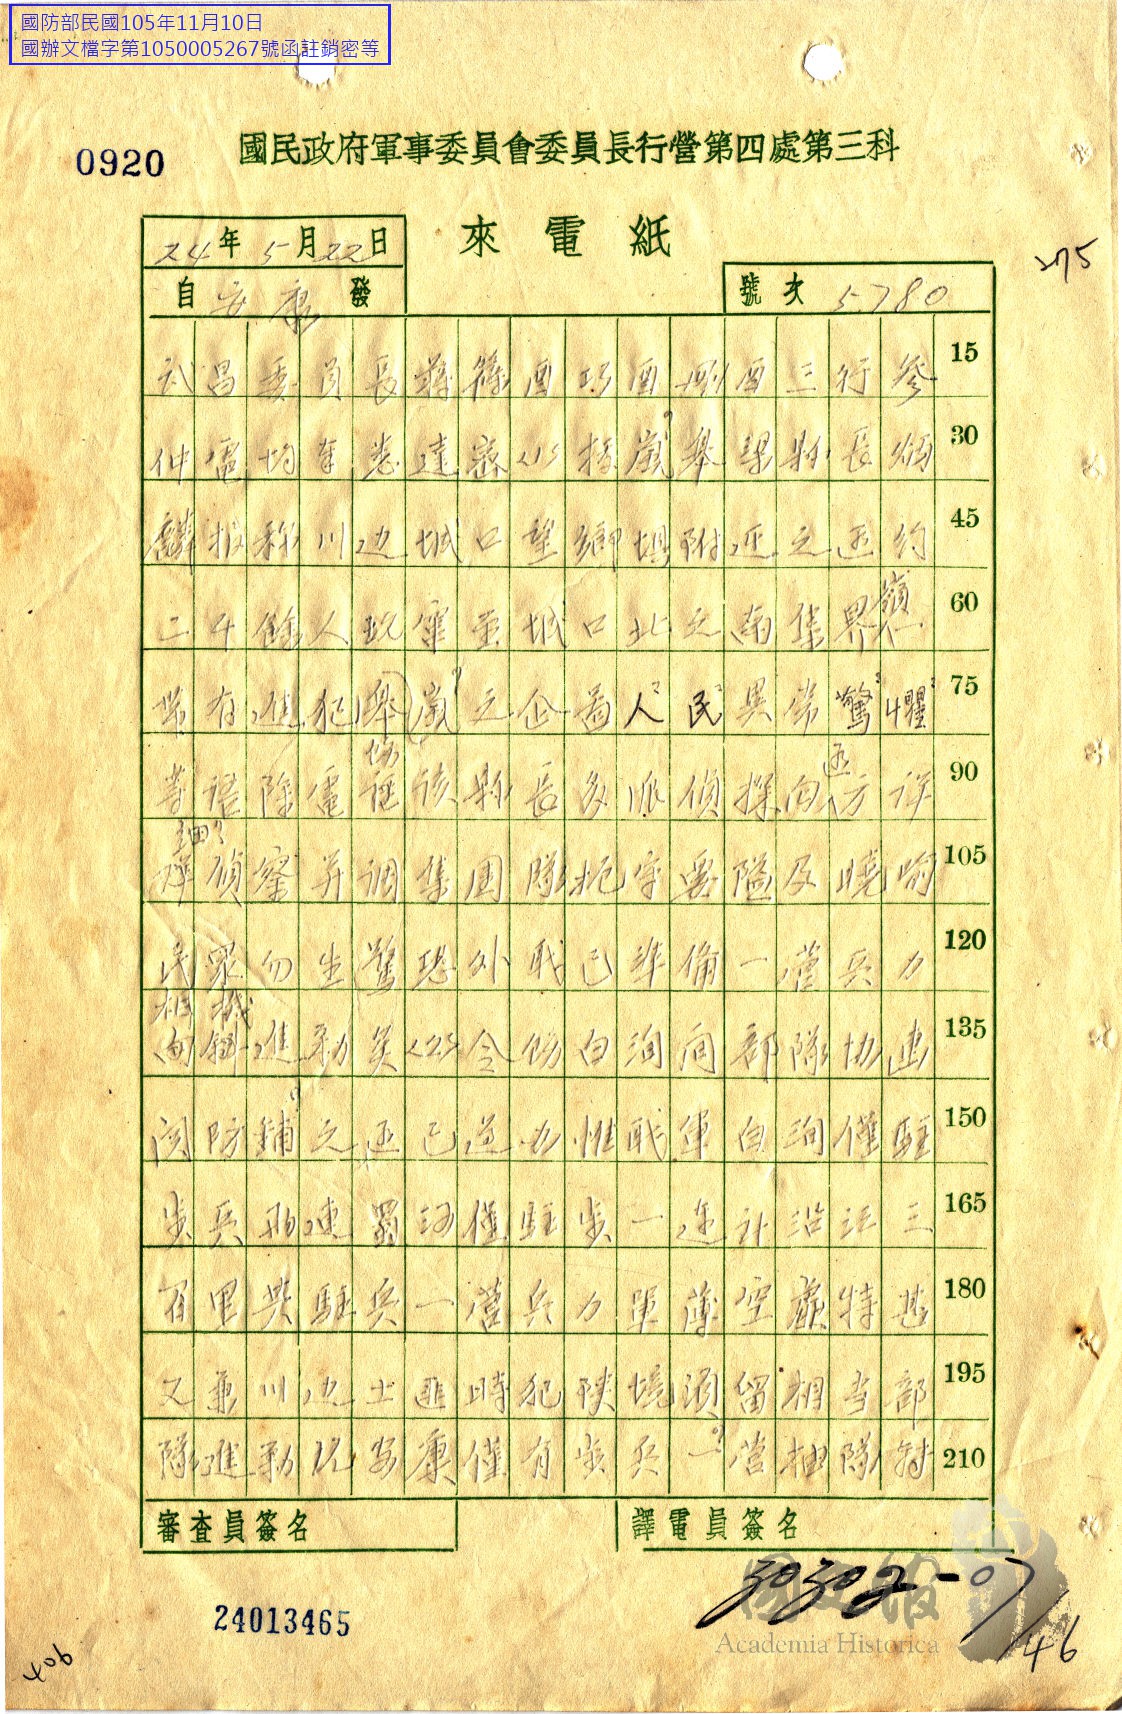 國防部民國105年11月10日
國辦文檔字第1050005267號函註銷密等
0920
國民政府軍事委員會委員長行營第四處第三科
來電紙
275
24年5月22日
自安康發
號次 5780
武昌委員長蔣篠酉巧酉酉三行參 15
仲電均奉悉達密據嵐舉縣長 30
麟報稱川边城口望鄉壩附近之匪約 45
二千餘人現竄至城口北之南集界嶺 60
帶有進犯嵐之企圖人民異常驚懼 75
等語除電飭該縣長多派偵探向匪方詳 90
細偵察并調集團隊扼守要隘及曉喻 105
民眾勿生驚恐外職已準備一營兵力 120
相機進勦令飭白洵间部隊協 135
防鋪之匪已遵办惟職軍白洵僅駐 150
步兵兩連蜀河僅駐步一連計沿江三 165
百里共駐兵一營兵力單薄空虛特甚 180
又兼川边土匪時犯陝境須留相当部 195
隊進勦现安康僅有步兵一营抽隊 210
審查員簽名
譯電員簽名
24013465
46
406
國史館
Academia Historica